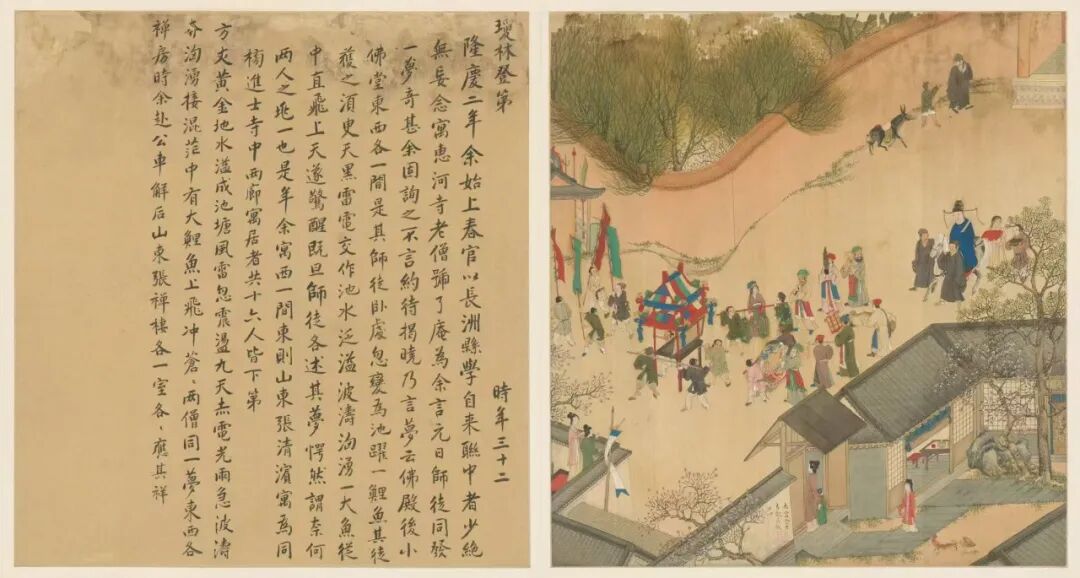 瓊林登第
時年三十二
隆慶二年余始上春官以長洲縣學自来聯中者少絶
無妄念寓恵河寺老僧號了庵為余言元日師徒同發
一夢奇甚余固詢之不言約待揭曉乃言夢云佛殿後小
佛堂東西各一間是其師徒卧處忽變為池躍一鯉魚其徒
獲之湏臾天黒雷電交作池水泛溢波濤洶湧一大魚從
中直飛上天遂驚醒既旦師徒各述其夢愕然謂奈何
两人之兆一也是年余寓西一間東則山東張清濵寓焉同
榜進士寺中两廊寓居者共十六人皆下第
方丈黄金地水溢成池塘風雷忽震盪九天赤電光雨急波濤
奔洶湧接混茫中有大鯉魚上飛冲蒼〻两僧同一夢東西各
禅房時余赴公車解后山東張禅棲各一室各〻應其祥